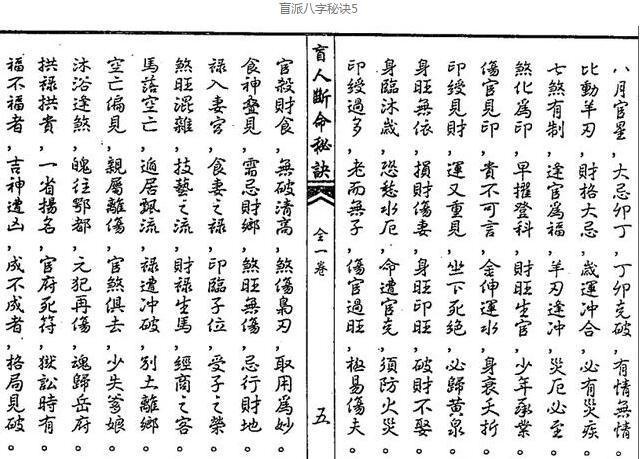 盲派八字秘诀5
八月官星,大忌卯丁,丁卯克破,有情無情。
比動羊刃,財格大忌,歲運冲合,必有災疾
七煞有制,逢官爲福,羊刃逢冲,災厄必至
煞化爲印,早擢登科,財旺生官,少年承業
傷官見印,貴不可言,金伸運水,身衰夭折
印綬見財,運又重見,坐下死絶,必歸黄泉
身旺無依,損財傷妻,身旺印旺,破財不娶
身臨沐歲,恐愁水厄,命遭官克,須防火災
印綬過多,老而無子,傷官過旺,極易傷夫。
盲人斷命秘訣 全一卷 五
官殺財食,無破清高,煞傷梟刃,取用爲妙
食神叠見,需忌財鄉,煞旺無傷,忌行財地
禄入妻宮,食妻之禄,印臨子位,受子之榮
煞旺混雜,技藝之流,財禄生馬,經商之客
馬落空亡,遁居飄流,禄遭冲破,别土離鄉
空亡偏見,親屬離傷,官煞俱去,少失爹娘
沐浴逢煞,魄往酆都,元犯再傷,魂歸岳府
拱禄拱貴,一省揚名,官府死符,獄訟時有
福不福者,吉神遭凶,成不成者,格局見破。